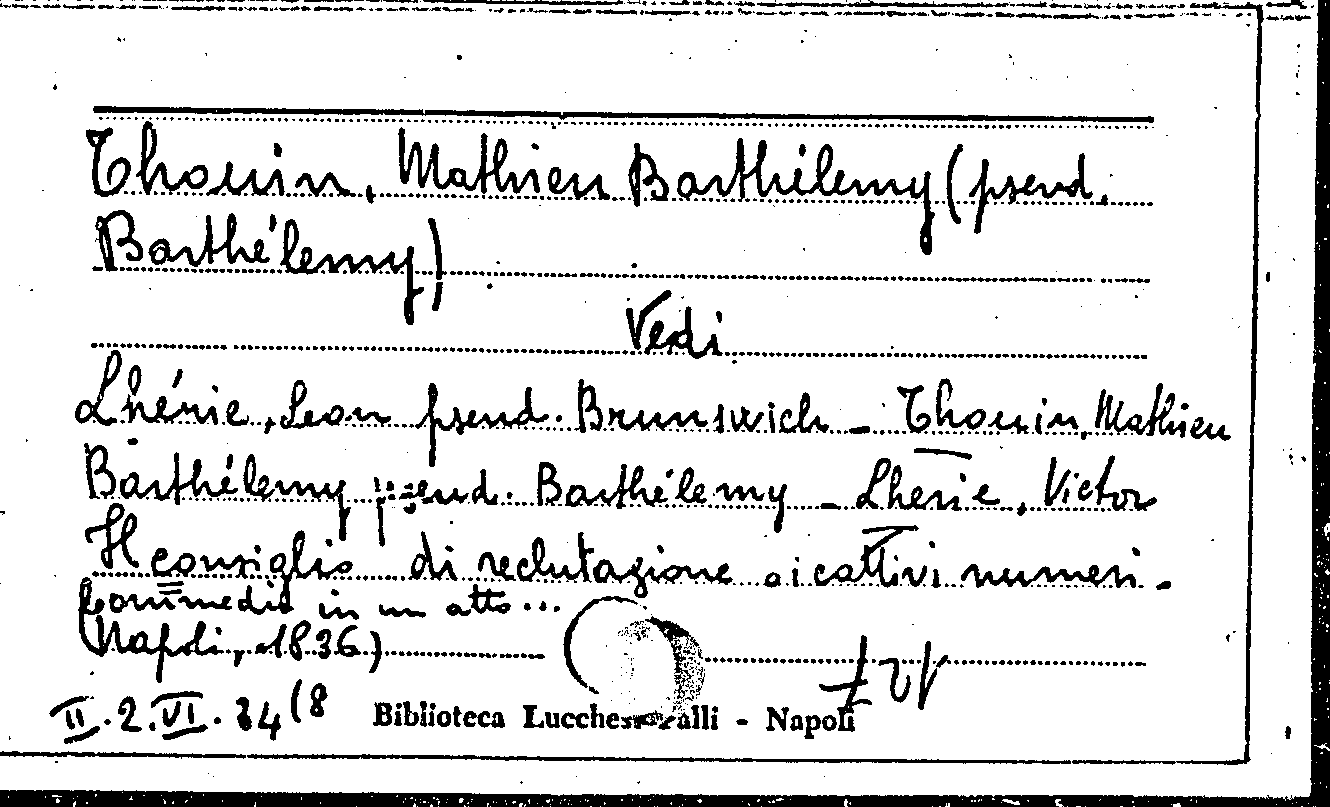 Thouin, Mathieu Barthélemy (pseud.
Barthélemy)
Vedi
Lhérie, Leon pseud. Brunswich - Thouin, Mathieu
Barthélemy pseud. Barthélemy - Lherie, Victor
Il consiglio di reclutazione o i cattivi numeri.
Commedia in un atto...
Napoli, 1836)
II.2.VI.34(8 Biblioteca Lucchesi Palli - Napoli